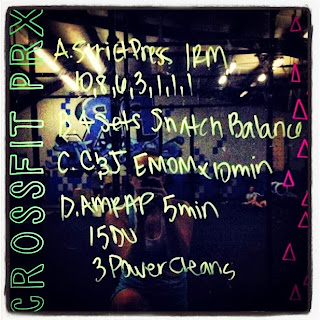 CROSSFIT PRX
A. Strict Press 1RM
10,8,6,3,1,1,1
B. 4 Sets Snatch Balance
C. C&J EMOM x 10min
D. AMRAP 5min
15DU
3 Power Cleans